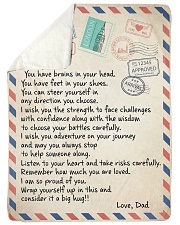 TS 12345
APPROVED
You have brains in your head,
You have feet in your shoes.
You can steer yourself in
any direction you choose.
I wish you the strength to face challenges
with confidence along with the wisdom
to choose your battles carefully.
I wish you adventure on your journey
and may you always stop
to help someone along.
Listen to your heart and take risks carefully.
Remember how much you are loved.
I am so proud of you.
Wrap yourself up in this and
consider it a big hug!!
Love, Dad